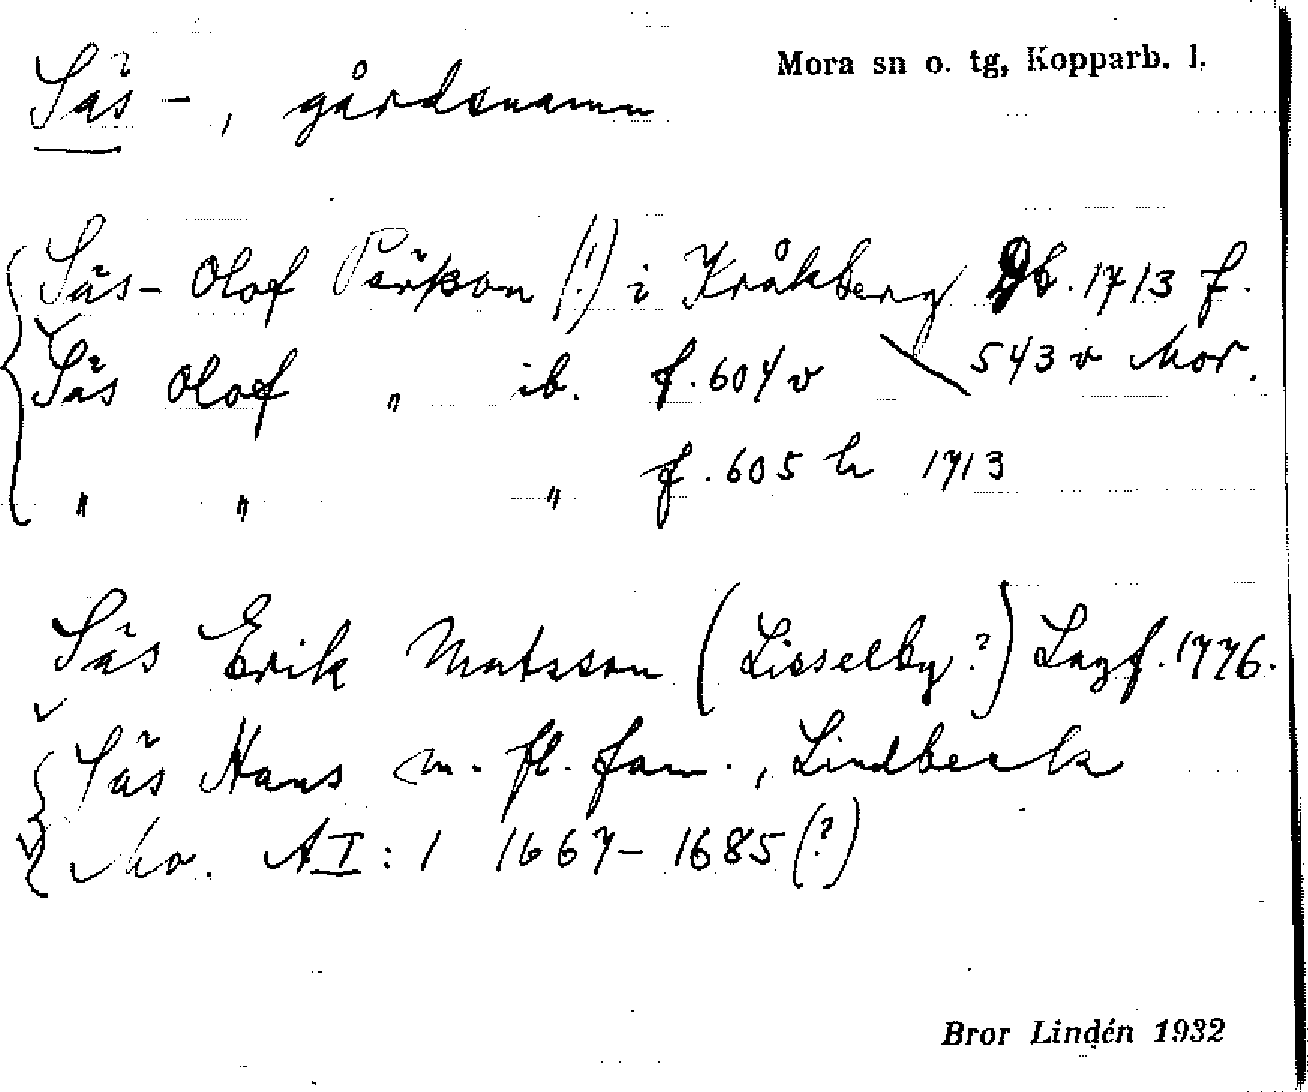 Mora sn o. tg, Kopparb. l.
Säs -, gårdsnamn
Säs- Olof Pärson (!) i Kråkberg Db. 1713 f.
543 v Mor.
Säs Olof " ib. f. 604 v
" " " f. 605 h 1713
Säs Erik Matsson (Lisselby?) Lagf. 1776.
Säs Hans m. fl. fam., Lindbeck
Mo. AI: 1 1667-1685 (?)
Bror Lindén 1932